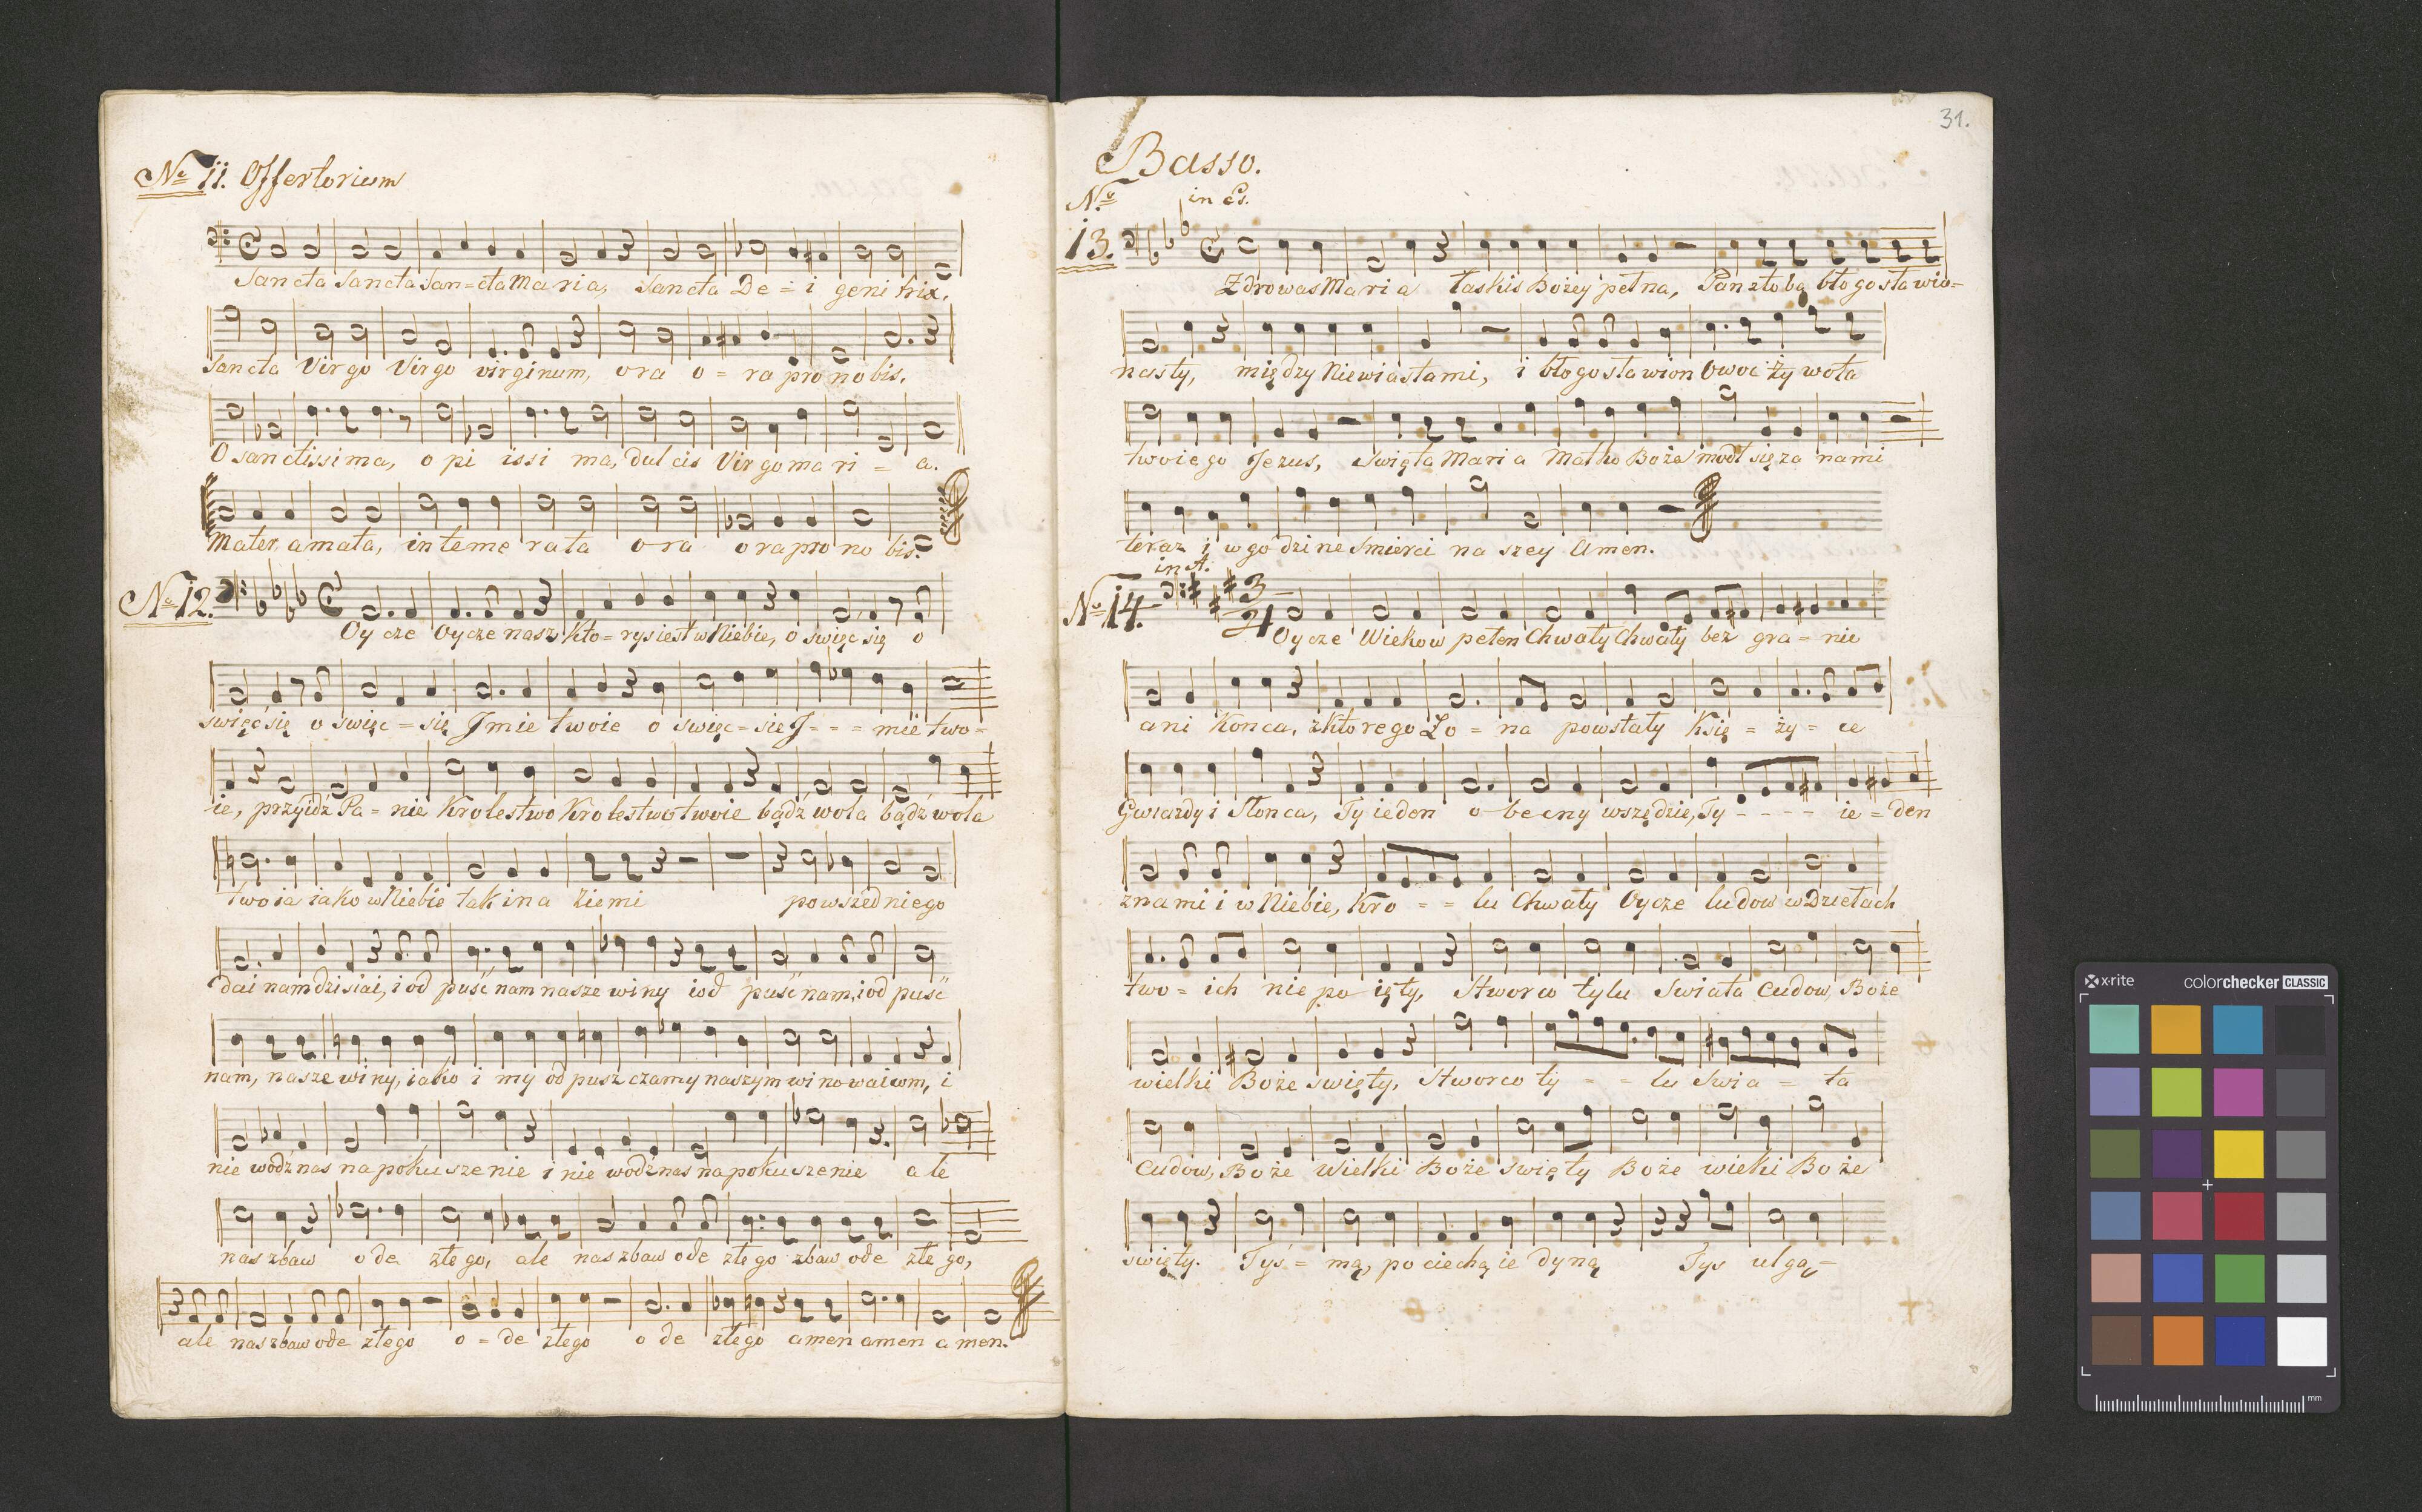 No 11. Offertorium
Sancta Sancta San=cta Maria, Sancta De = i geni trix,
Sancta Virgo Virgo virginum, ora o = ra pro nobis.
O sanctissima, o pi issi ma, dulcis Virgo mari = a.
Mater amata, inteme rata ora ora pro no bis.
No 12.
Oy cze Oycze nasz kto=rys iest w Niebie, o swięć się o
swięć się o swięc = się Jmie twoie o swięc = sie J - - = mie two=
ie, przyidź Pa = nie Krolestwo Krolestwo twoie bądź wola bądź wola
twoia iako w Niebie tak i na Ziemi powszedniego
dai nam dzisiai, i od puść nam nasze winy i od pusć nam, i od pusć
nam, nasze winy, iako i my od puszczamy naszym winowaicom, i
nie wodź nas na pokuszenie i nie wodź nas na pokuszenie ale
nas zbaw ode złego, ale nas zbaw ode złego zbaw ode złe go,
ale nas zbaw ode złego o = de złego o de złego amen amen a men.
31.
Basso.
No 13. in Es.
Zdrowas Maria łaskis Bożey pełna, Pan z tobą błogosławio=
nasty, między Niewiastami, i błogosławion Owoc ży wota
twoiego Jezus, Swięta Maria Matko Boża modl się za nami
teraz i w godzine smierci naszey Amen.
in A.
No 14. 3/4
Oycze Wiekow pełen Chwały Chwały bez gra = nic
ani Konca, z ktorego Ło = na powstały Księ = ży = ce
Gwiazdy i Słonca, Ty ieden o becny wszędzie, Ty - - - - ie = den
z nami i w Niebie, Kro = = lu Chwały Oycze ludow w Dziełach
two = ich nie po ięty, Stworco tylu Swiata Cudow, Boże
wielki Boże swięty, Stworco ty = = lu Swia = ta
Cudow, Boże Wielki Boże swięty Boże wielki Boże
swięty. Tyś = mą, pociechą ie dyną Tys ulgą,=
x·rite
colorchecker CLASSIC
mm